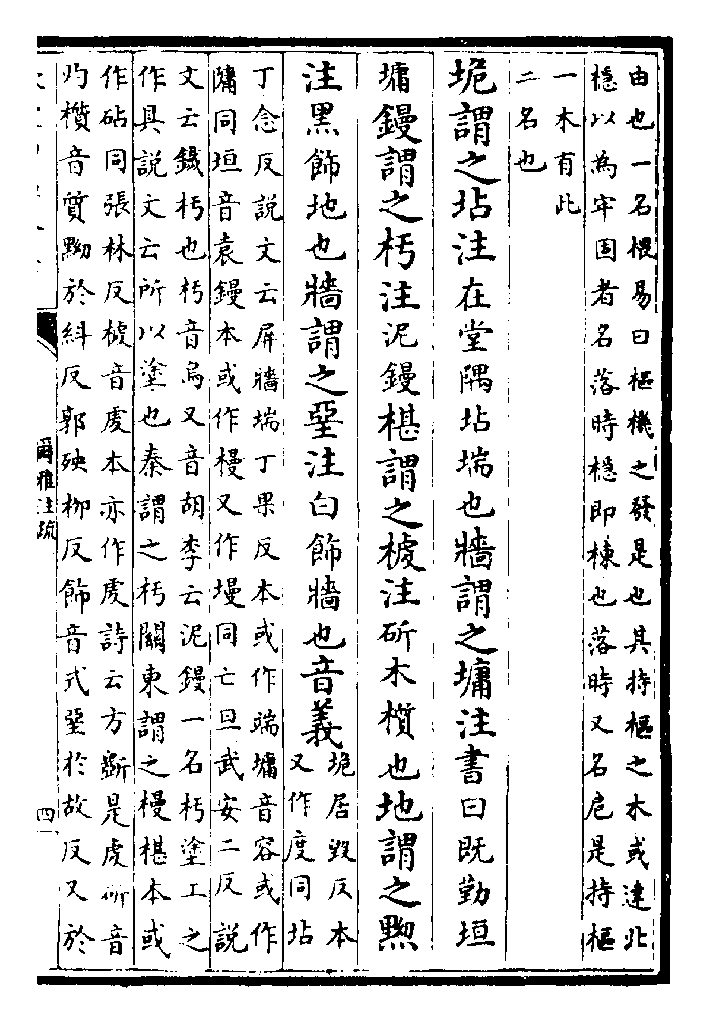 由也一名椳易曰樞機之發是也其持樞之木或達北
檼以為牢固者名落時檼即棟也落時又名戹是持樞
一木有此
二名也
垝謂之坫注在堂隅坫端也牆謂之墉注書曰既勤垣
墉鏝謂之杇注泥鏝椹謂之榩注斫木櫍也地謂之黝
注黑飾地也牆謂之堊注白飾牆也音義
垝居毀反本
又作度同坫
丁念反説文云屏牆端丁果反本或作端墉音容或作
牅同垣音袁鏝本或作槾又作墁同亡旦武安二反説
文云鐵杇也杇音烏又音胡李云泥鏝一名杇塗工之
作具説文云所以塗也秦謂之杇關東謂之槾椹本或
作砧同張林反榩音虔本亦作虔詩云方斲是虔斫音
灼櫍音質黝於糾反郭殃柳反飾音式堊於故反又於
爾雅注疏
四